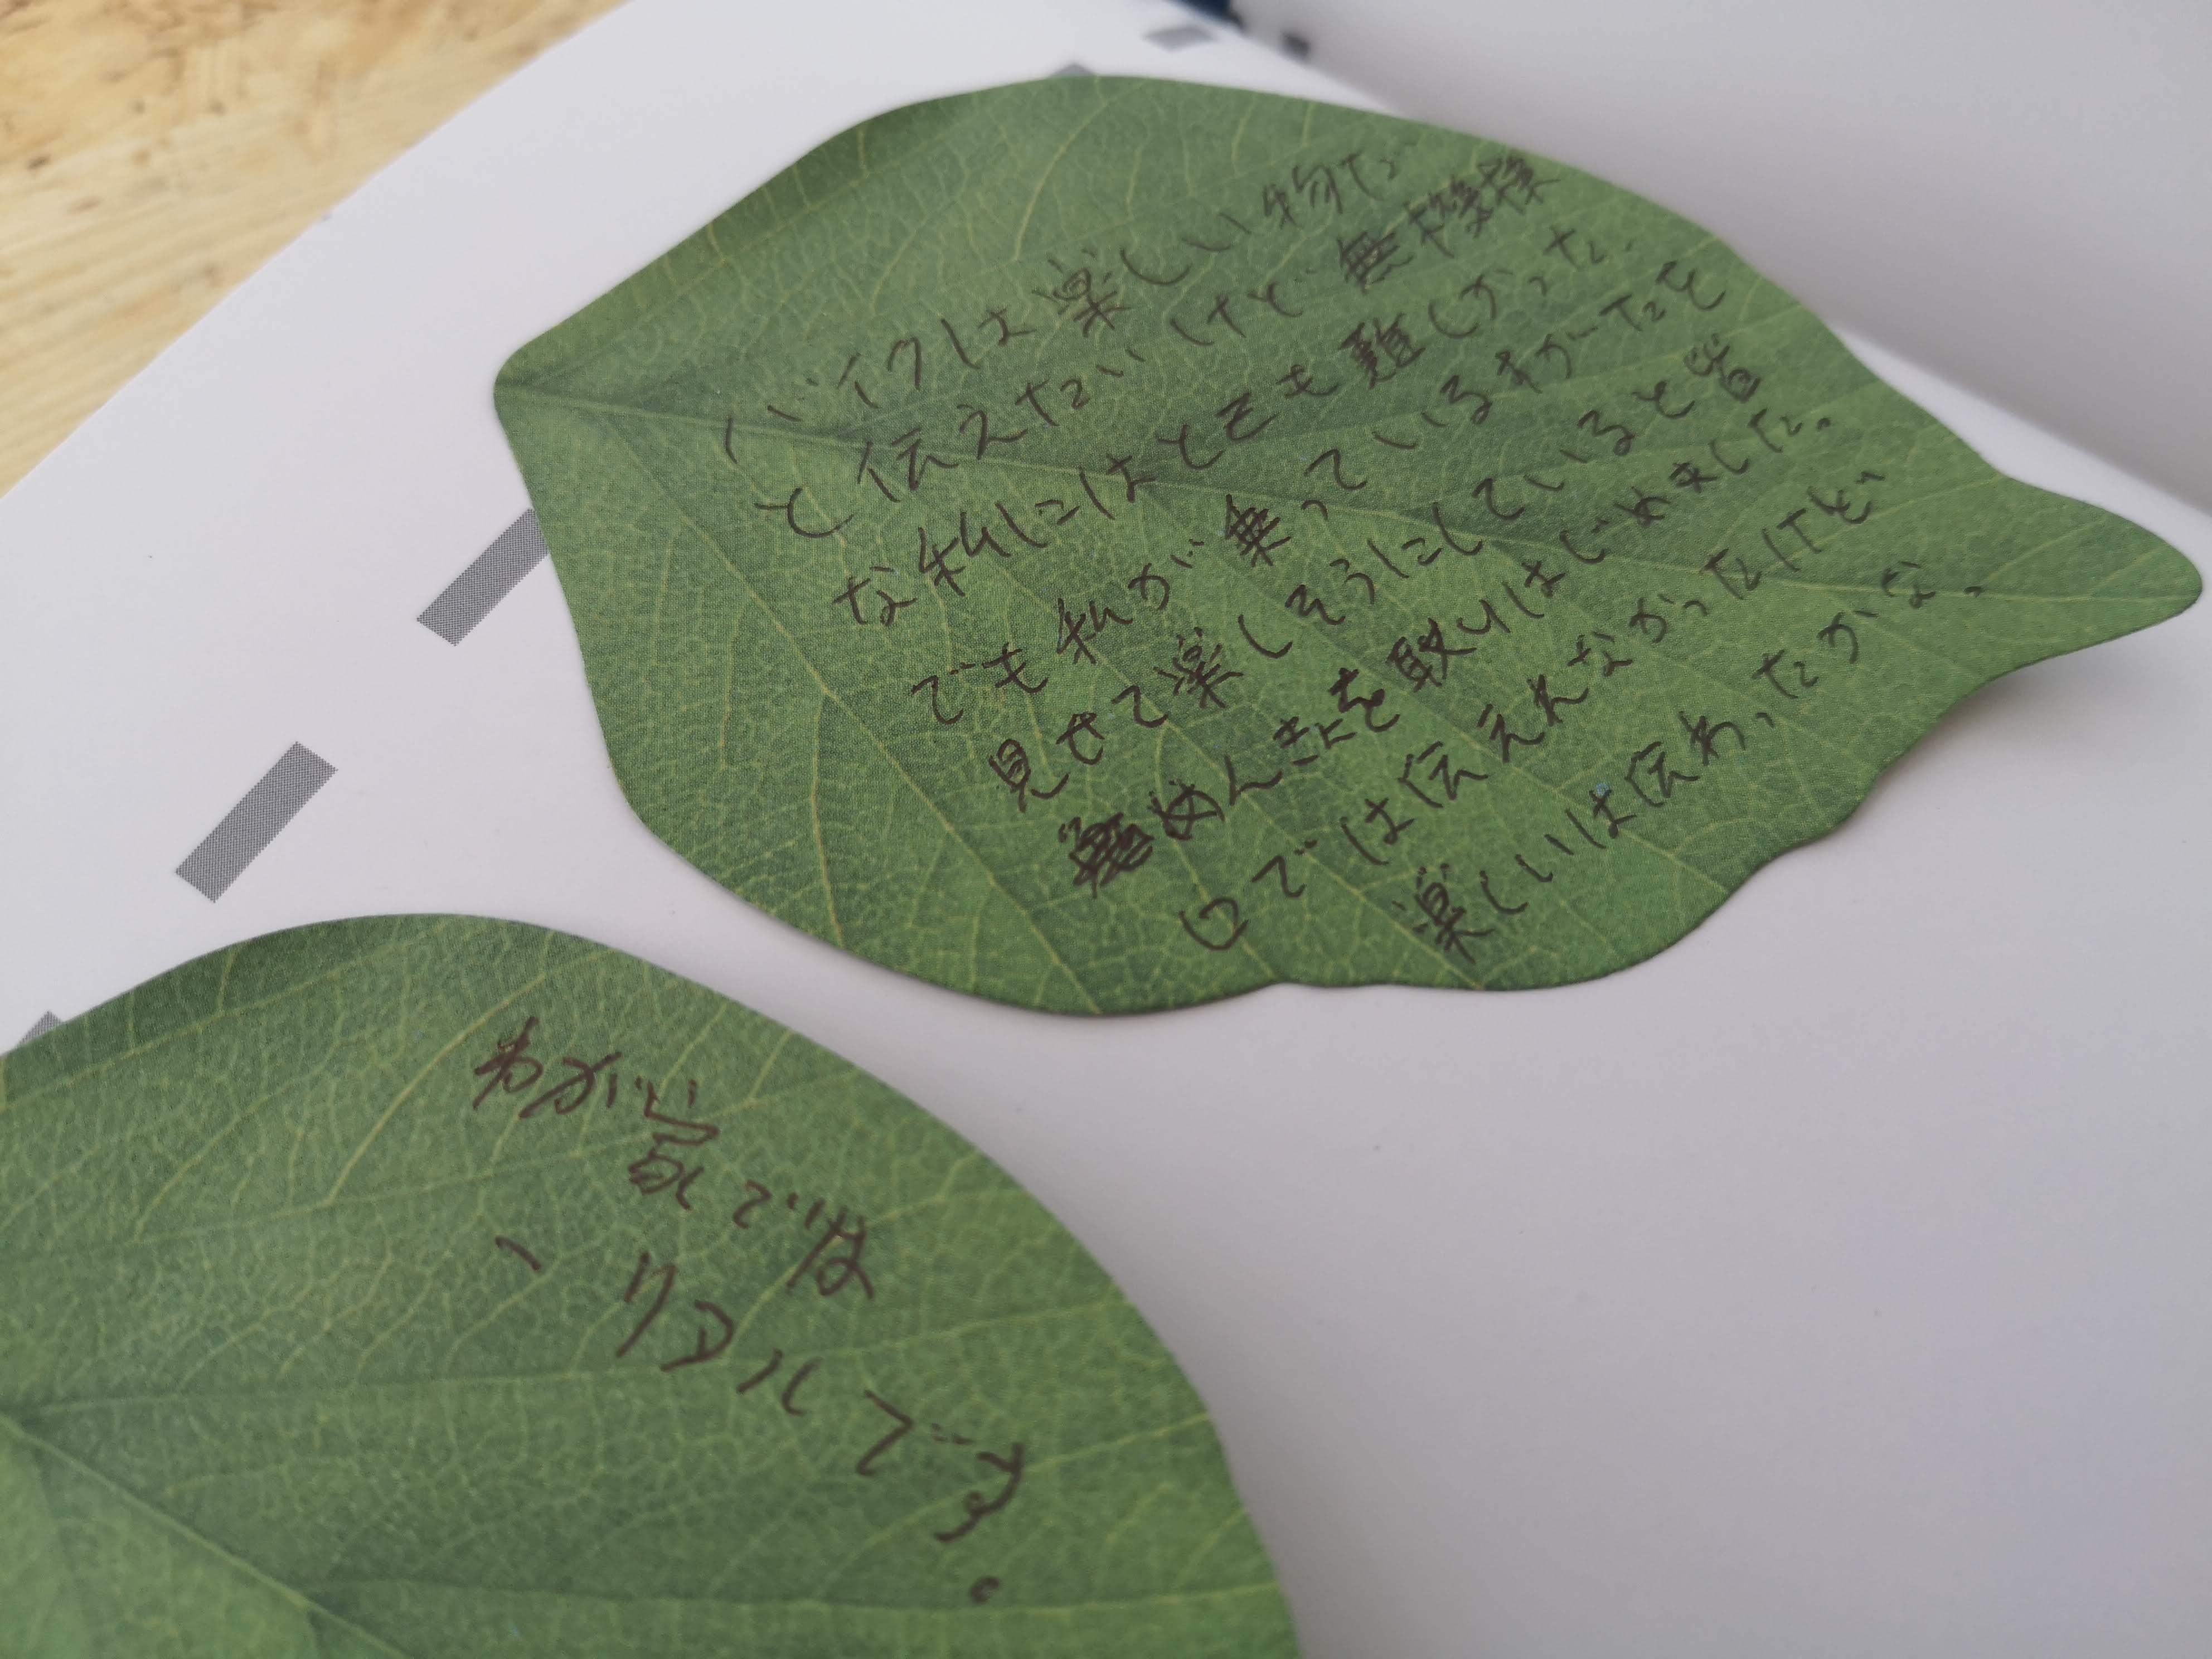 バイクは楽しい物だ
と伝えたいけど無機様
な私にはとても難しかった.
でも私が乗っているすがたを
見せて楽しそうにしていると皆
めんきょを取りはじめました。
口では伝えれなかったけど、
楽しいは伝わったかな.
わが家では
リアルです。